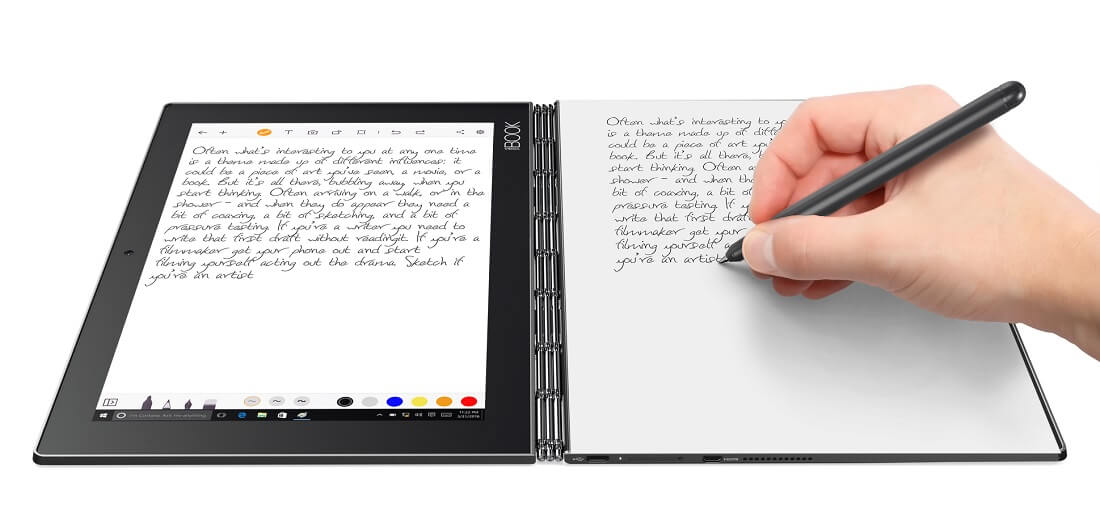 T
Often what's interesting to you at any one time
is a theme made up of different influences: it
could be a piece of art you've seen, a movie, or a
book. But it's all there, bubbling away when you
start thinking. Often arriving on a walk, or in the
shower - and when they do appear they need a
bit of coaxing, a bit of sketching, and a bit of
pressure testing. If you're a writer you need to
write that first draft without readingit. If you're a
filmmaker get your phone out and start
filming yourself acting out the drama. Sketch if
you're an artist
I'm Cortana. Ask me anything.
11:22 PM
BOOK
Often what's interesting to yo
is a theme made up of differe
could be a piece of art you
book. But it's all there,
start thinking. Often a
shower - and when the
bit of coaxing, a bit
pressure testing. If y
write that first draf
filmmaker get your
filming yourself a
you're an artist
HDMI